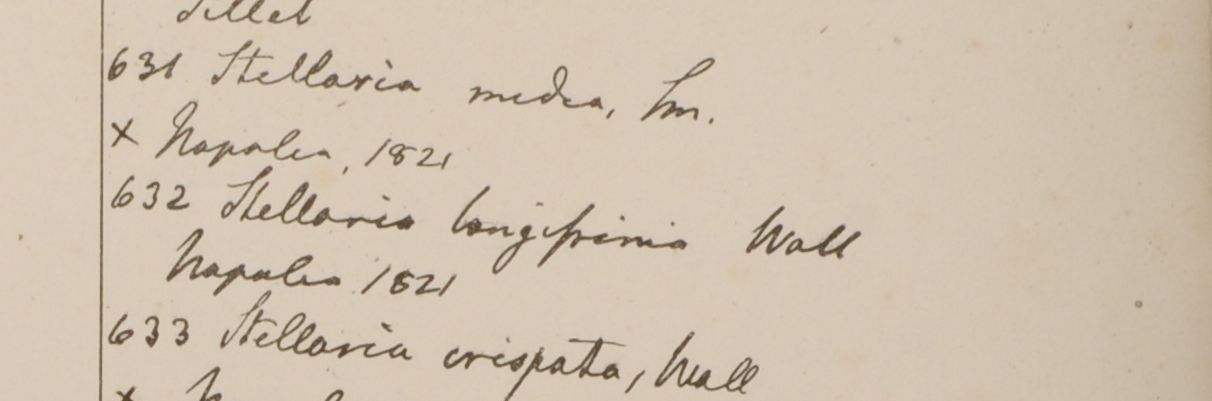 Sillet
631 Stellaria media, Sm.
x Napalia, 1821
632 Stellaria longissima Wall
Napalia 1821
633 Stellaria crispata, Wall
x